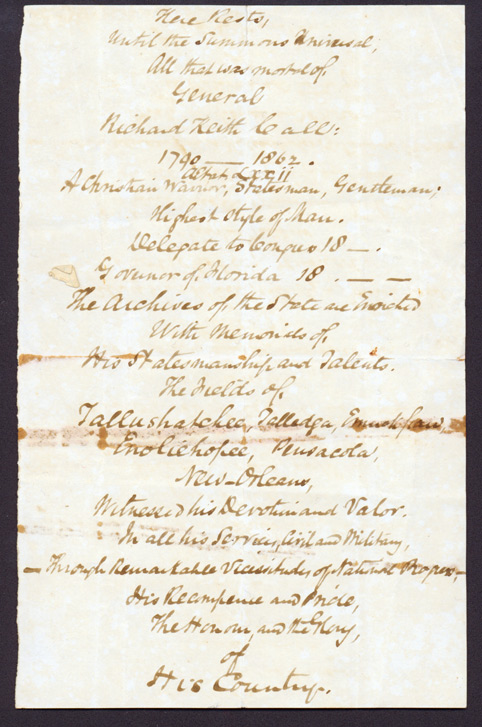 Here Rests,
Until the Summons Universal,
All that was mortal of,
General
Richard Keith Call:
1790 — 1862.
Aetat LXXII
A Christian Warrior, Statesman, Gentleman;
Highest style of Man.
Delegate to Congress 18 — .
Governor of Florida 18 . — —
The Archives of the State are Enriched
With Memorials of,
His Statesmanship and Talents.
The Fields of,
Tallushatchee, Talledga, Emuckfaw,
Enotichopee, Pensacola,
New-Orleans,
Witnessed his Devotion and Valor.
In all his Services, Civil and Military,
— Through Remarkable Vicissitudes of National Progress, —
His Recompense and Pride,
The Honour, and the Glory,
of
His Country.